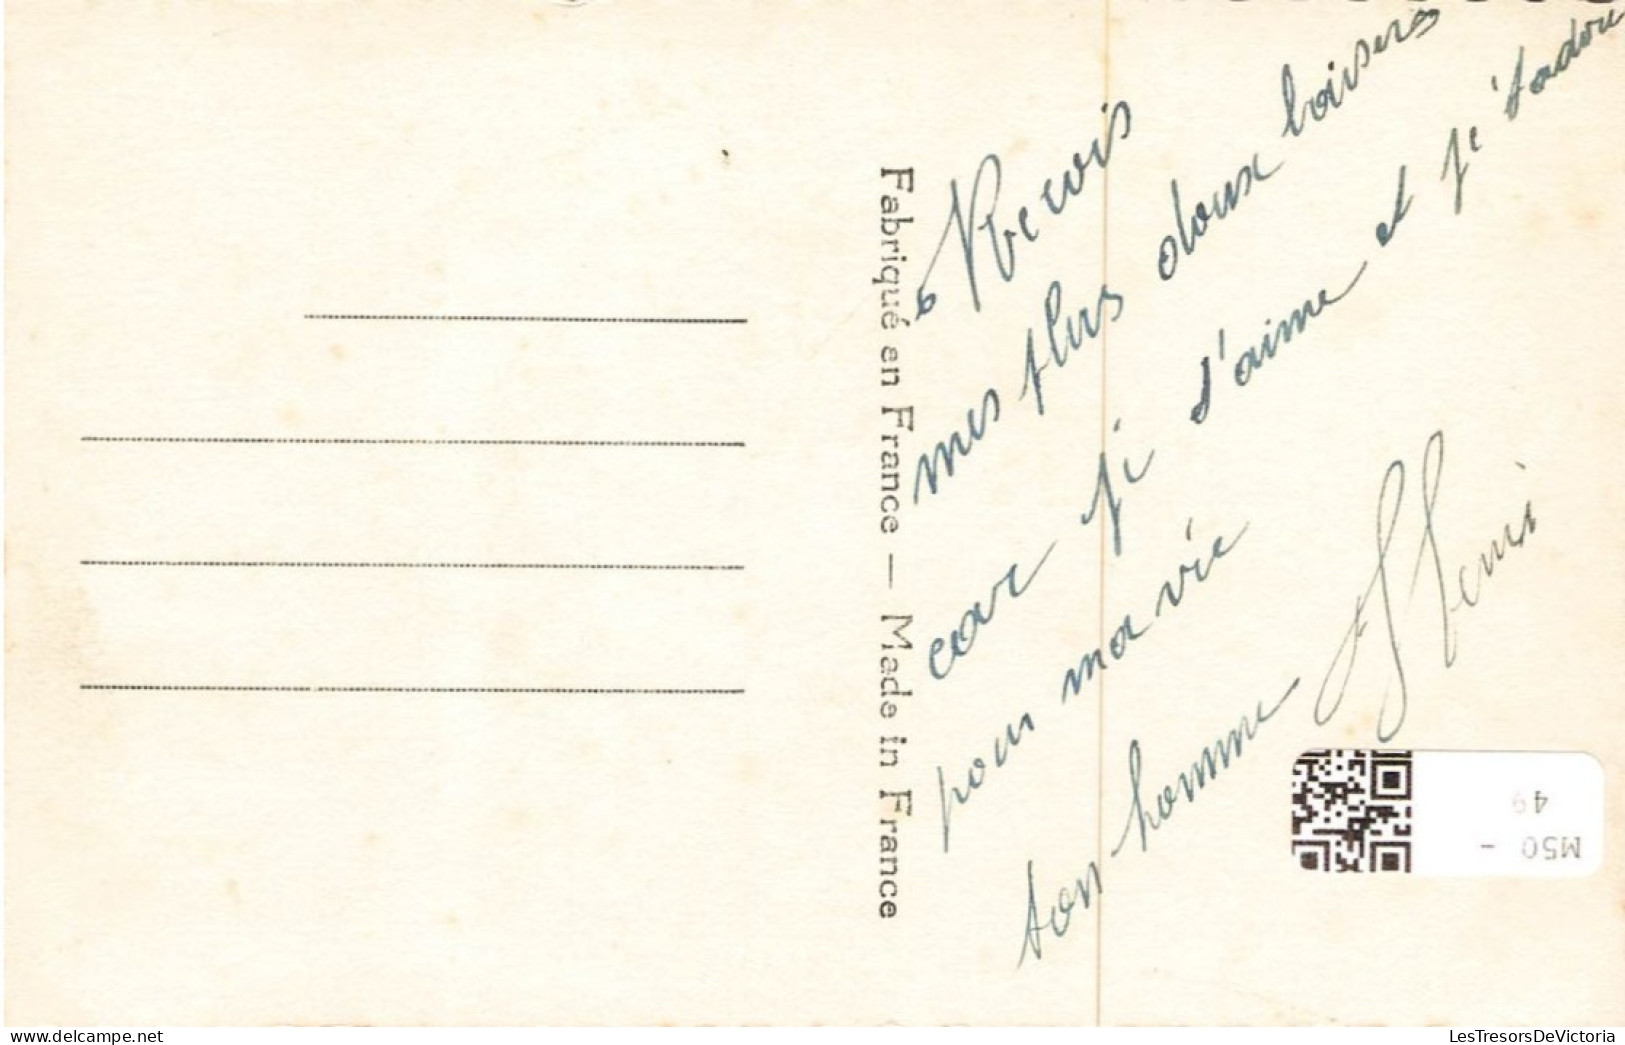 Reçois
mes plus doux baisers
car je t'aime et je t'adore
pour ma vie
ton homme Henri
Fabriqué en France — Made in France
M50 -
49
delcampe.net
LesTresorsDeVictoria